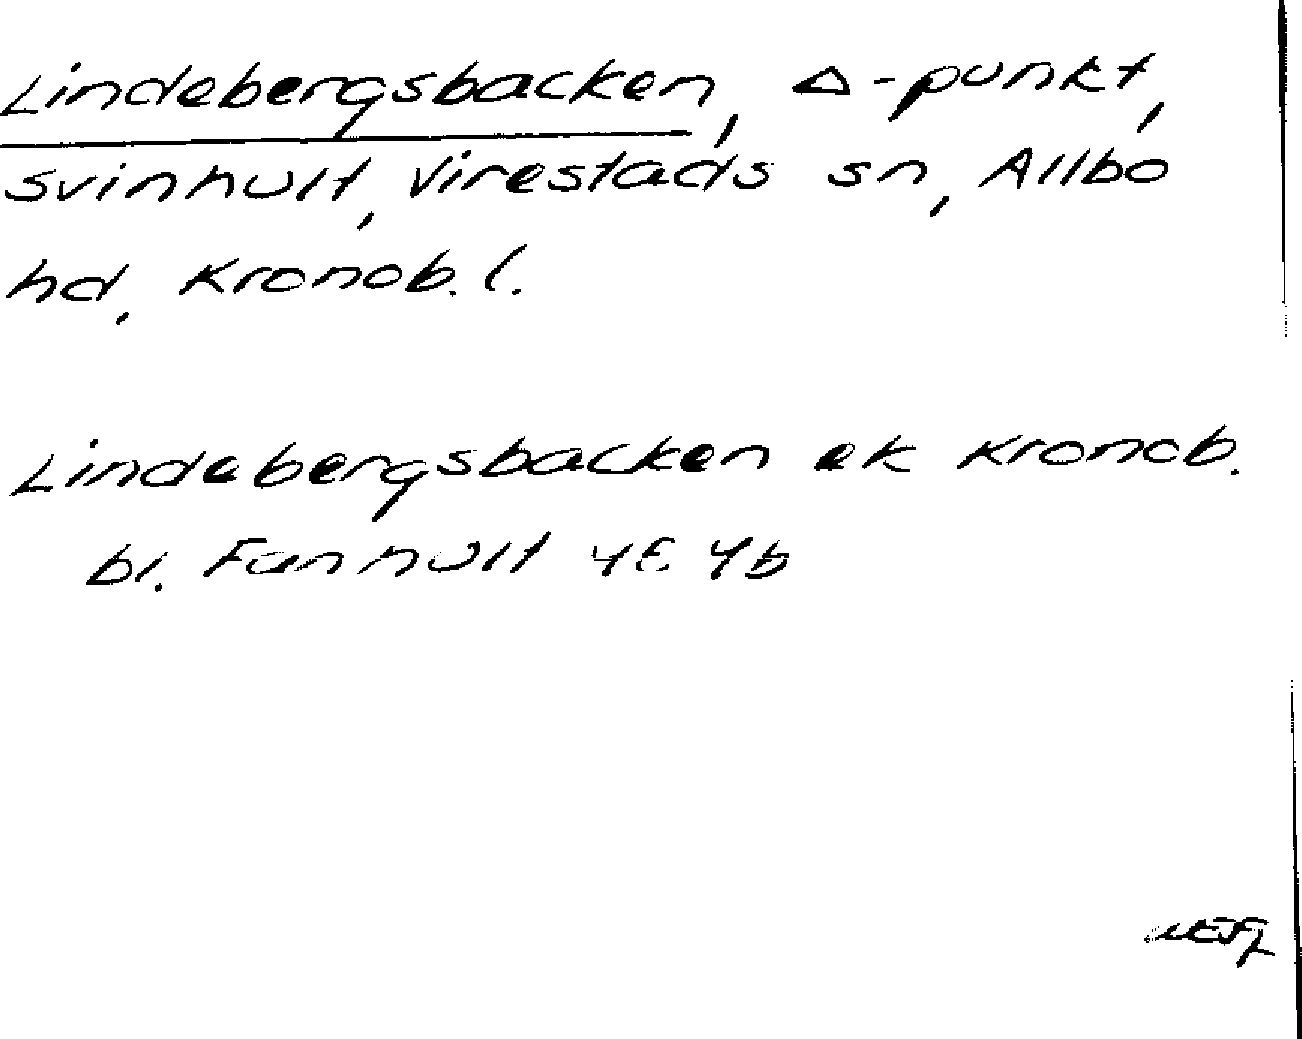 Lindebergsbacken, Δ-punkt,
Svinhult, Virestads sn, Allbo
hd, Kronob. l.
Lindebergsbacken ek Kronob.
bl. Fanhult 4E 4b